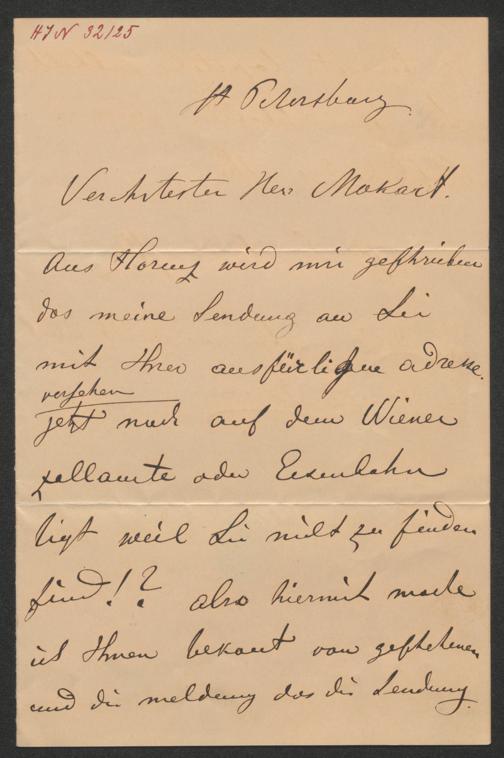 HJN 32125
St Petersburg.
Verehrtester Herr Makart.
Aus Florenz wird mir geschrieben
das meine Sendung an Sie
mit Ihrer ausfürlichen adresse.
versehen
jetzt noch auf dem Wiener
zollamte oder Eisenbahn
ligt weil Sie nicht zu finden
sind!? also hiermit mache
ich Ihnen bekant von geschehenen
und die meldung das die Sendung